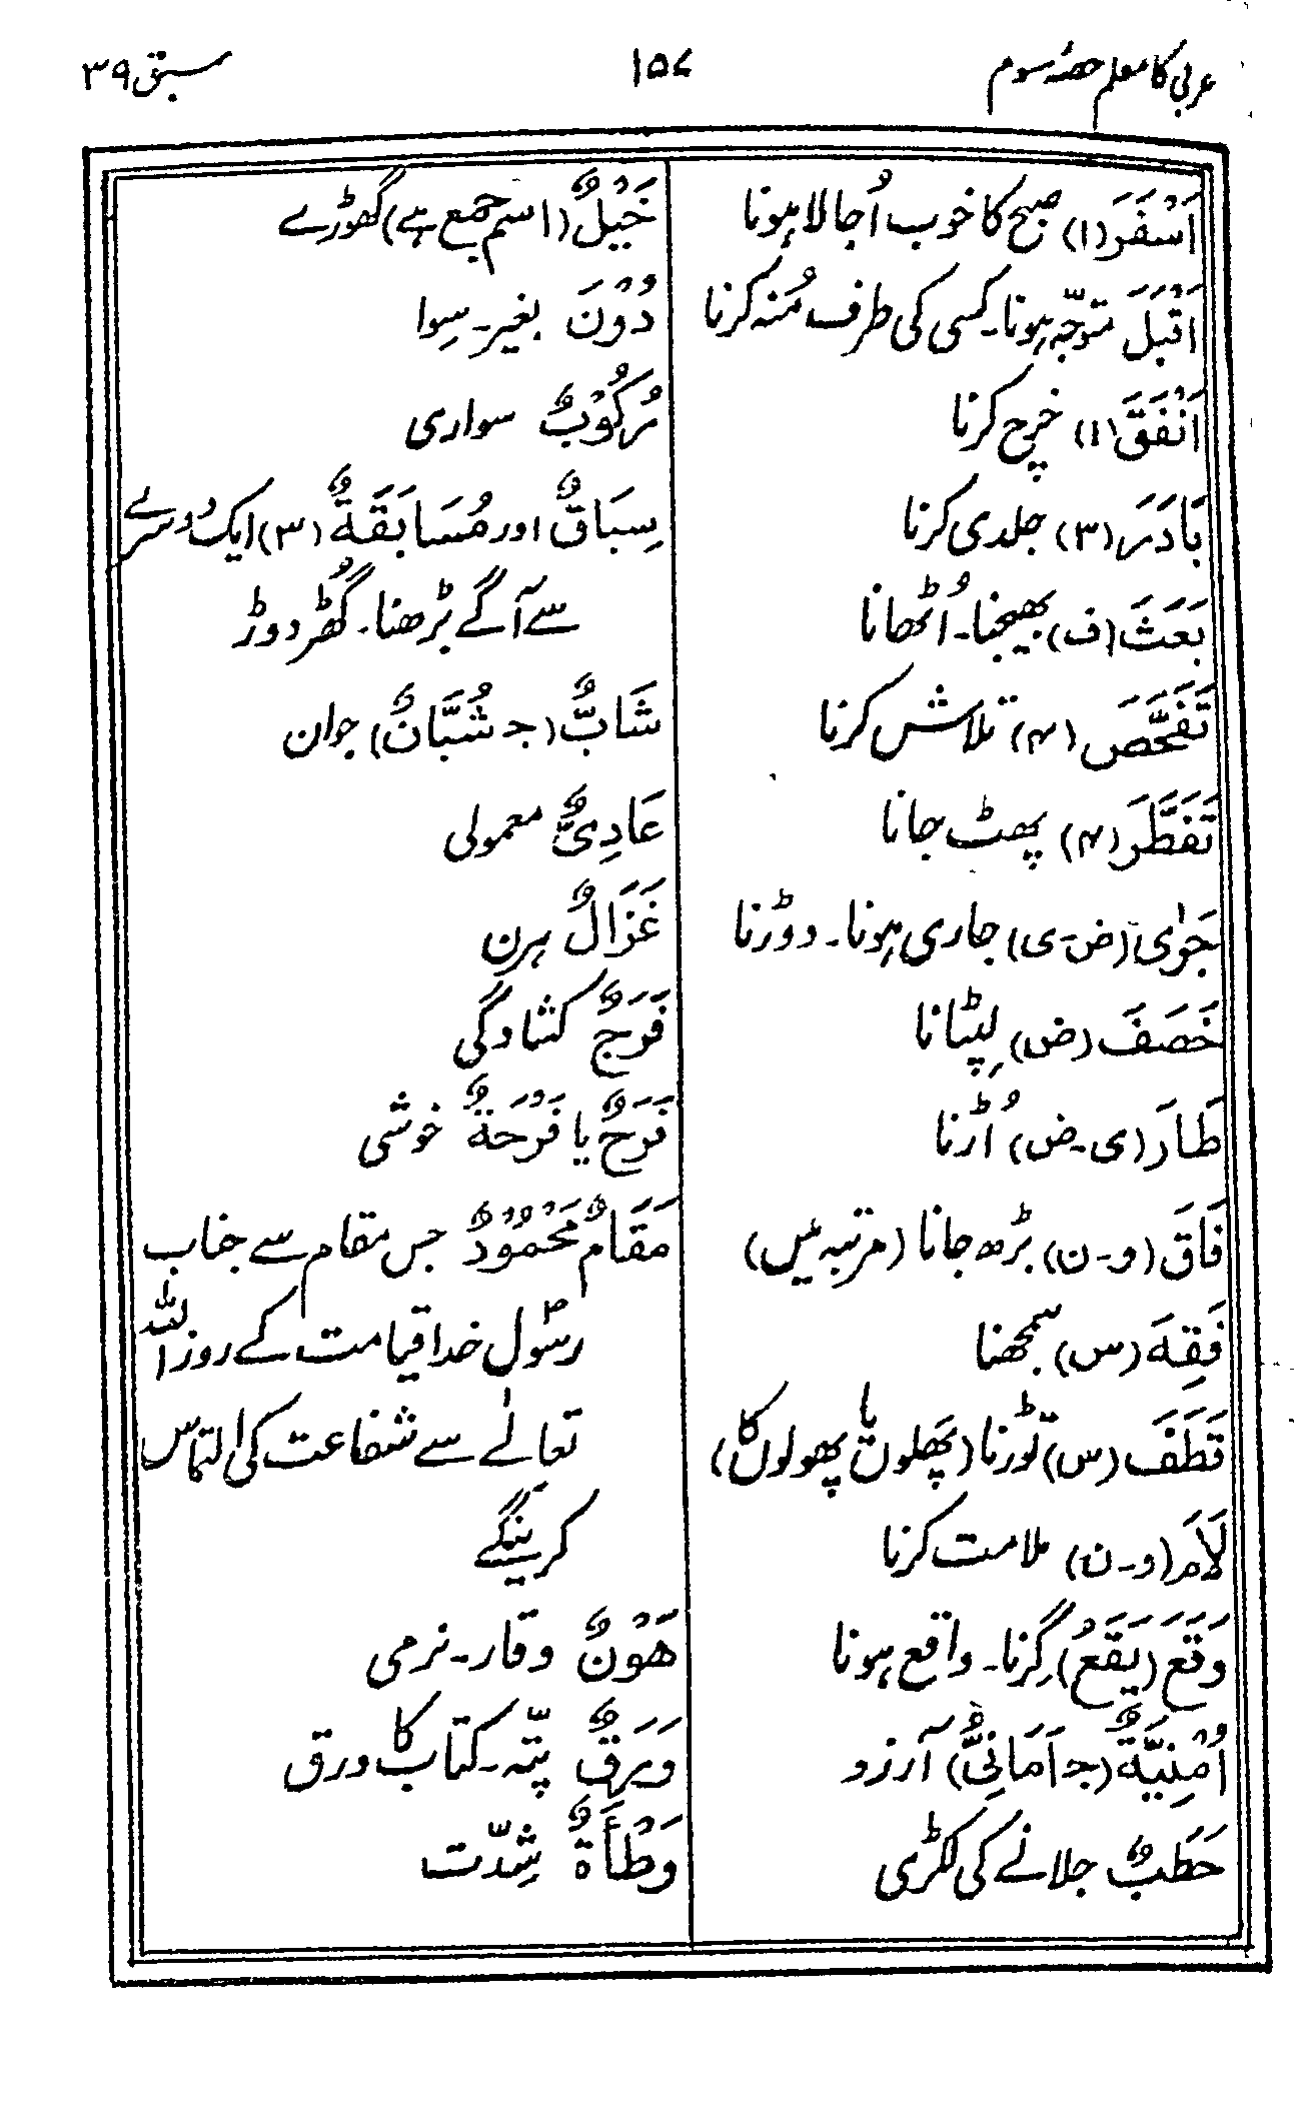 عربی کا معلم حصّہ سوم ۱۵۷ سبق ۳۹
اَسْفَرَ (۱) صبح کا خوب اُجالا ہونا
اَقْبَلَ متوجّہ ہونا۔ کسی کی طرف مُنہ کرنا
اَنْفَقَ (۱) خرچ کرنا
بَادَرَ (۳) جلدی کرنا
بَعَثَ (ف) بھیجنا۔ اُٹھانا
تَفَحَّصَ (۴) تلاش کرنا
تَفَطَّرَ (۴) پھٹ جانا
جَرٰی (ض-ی) جاری ہونا۔ دوڑنا
خَصَفَ (ض) لِپٹانا
طَارَ (ی-ض) اُڑنا
فَاقَ (و-ن) بڑھ جانا (مرتبہ میں)
فَقِهَ (س) سمجھنا
قَطَفَ (س) توڑنا (پَھلوں یا پھولوں کا)
لَامَ (و-ن) ملامت کرنا
وَقَعَ (یَقَعُ) گِرنا۔ واقع ہونا
اُمْنِیَّةٌ (جـ اَمَانِیُّ) آرزو
حَطَبٌ جلانے کی لکڑی
خَیْلٌ (اسم جمع ہے) گھوڑے
دُوْنَ بغیر۔ سِوا
رُکُوْبٌ سواری
سِبَاقٌ اور مُسَابَقَةٌ (۳) ایک دوسرے
سے آگے بڑھنا۔ گُھڑ دوڑ
شَابٌّ (جـ شُبَّانٌ) جوان
عَادِیٌّ معمولی
غَزَالٌ ہرن
فَرَجٌ کشادگی
فَرَحٌ یا فَرْحَةٌ خوشی
مَقَامٌ مَحْمُوْدٌ جس مقام سے جناب
رسُول خدا ؐ قیامت کے روز اللہ
تعالٰے سے شفاعت کی التماس
کرینگے
هَوْنٌ وقار۔ نرمی
وَرَقٌ پتّہ۔ کتاب کا ورق
وَطْأَةٌ شِدّت